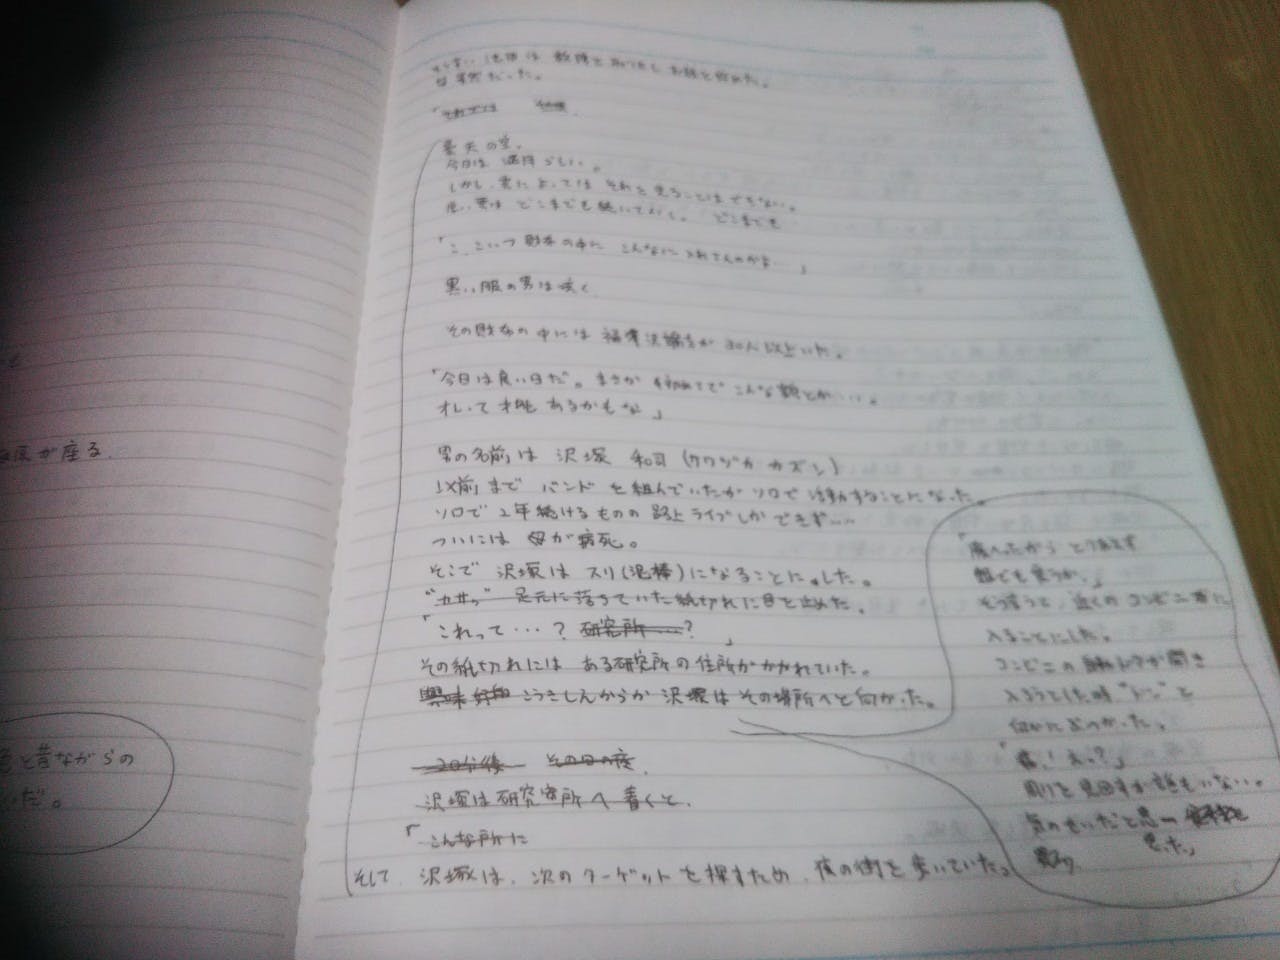 が座る
と昔ながらの
だ。
は 教授と
だった。
「それでは
曇天の空。
今日は 満月らしい。
しかし、雲によっては それを見ることはできない。
雲は どこまでも続いていく。 どこまでも
「こ、こいつ 財布の中に こんなに 入れてんのかよ…」
黒い服の男は呟く
その財布の中には 福澤諭吉が 30人以上いた。
「今日は良い日だ。まさか 初めてで こんな額とか…。
オレって才能 あるかもな」
男の名前は 沢塚 和司 (サワヅカ カズシ)
以前まで バンドを組んでいたが ソロで活動することになった。
ソロで 2年続けるものの 路上ライブしかできず…
ついには 母が病死。
そこで 沢塚は スリ(泥棒)になることにした。
足元に落ちていた紙切れに目を止めた。
「これって…? 研究所……?」
その紙切れには ある研究所の住所がかかれていた。
興味 こうきしんからか 沢塚は その場所へと向かった。
20分後 その日の夜
沢塚は研究所へ 着くと、
「こんな所に
そして、沢塚は、次のターゲットを探すため、夜の街を歩いていた。
「腹へったから とりあえず
飯でも買うか。」
そう言うと、近くの コンビニ
入ることにした。
コンビニの 自動ドアが開き
入ろうとした時 "ドン" と
何かにぶつかった。
「痛! えっ?」
周りを見回すが誰もいない。
気のせいだと思
思った